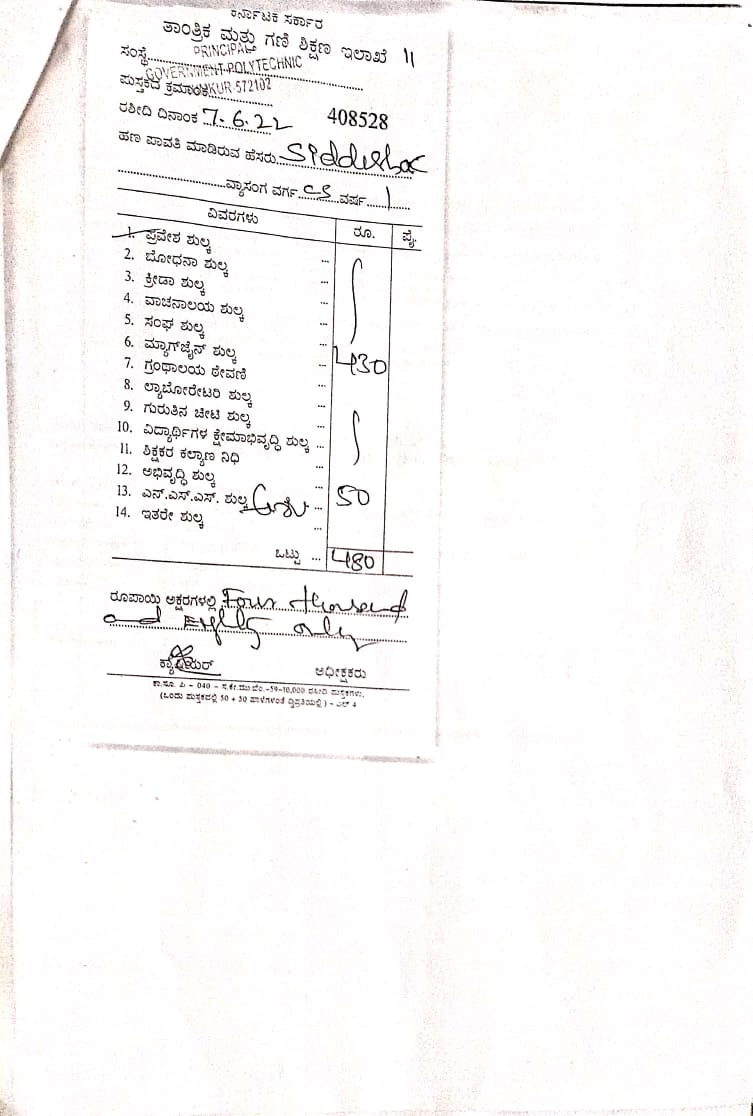 ಕರ್ನಾಟಕ ಸರ್ಕಾರ
ತಾಂತ್ರಿಕ ಮತ್ತು ಗಣಿ ಶಿಕ್ಷಣ ಇಲಾಖೆ
ಸಂಸ್ಥೆ PRINCIPAL
GOVERNMENT POLYTECHNIC
ಪುಸ್ತಕದ ಕ್ರಮಾಂಕ 572102
ರಶೀದಿ ದಿನಾಂಕ 7.6.22 408528
ಹಣ ಪಾವತಿ ಮಾಡಿರುವ ಹೆಸರು
ವ್ಯಾಸಂಗ ವರ್ಗ CS ವರ್ಷ 1
ವಿವರಗಳು ರೂ. ಪೈ.
1. ಪ್ರವೇಶ ಶುಲ್ಕ
2. ಬೋಧನಾ ಶುಲ್ಕ ...
3. ಕ್ರೀಡಾ ಶುಲ್ಕ ...
4. ವಾಚನಾಲಯ ಶುಲ್ಕ ...
5. ಸಂಘ ಶುಲ್ಕ ...
6. ಮ್ಯಾಗ್‌ಜೈನ್ ಶುಲ್ಕ ... 430
7. ಗ್ರಂಥಾಲಯ ಠೇವಣಿ ...
8. ಲ್ಯಾಬೋರೇಟರಿ ಶುಲ್ಕ ...
9. ಗುರುತಿನ ಚೀಟಿ ಶುಲ್ಕ ...
10. ವಿದ್ಯಾರ್ಥಿಗಳ ಕ್ಷೇಮಾಭಿವೃದ್ಧಿ ಶುಲ್ಕ ...
11. ಶಿಕ್ಷಕರ ಕಲ್ಯಾಣ ನಿಧಿ ...
12. ಅಭಿವೃದ್ಧಿ ಶುಲ್ಕ ...
13. ಎನ್.ಎಸ್.ಎಸ್. ಶುಲ್ಕ ... 50
14. ಇತರೇ ಶುಲ್ಕ ...
ಒಟ್ಟು ... 480
ರೂಪಾಯಿ ಅಕ್ಷರಗಳಲ್ಲಿ Four thousend
and Eighty only
ಕ್ಯಾಷಿಯರ್ ಅಧೀಕ್ಷಕರು
(ಒಂದು ಪುಸ್ತಕದಲ್ಲಿ 50 + 50 ಹಾಳೆಗಳಂತೆ ದ್ವಿಪ್ರತಿಯಲ್ಲಿ) - ಎಲ್ 4